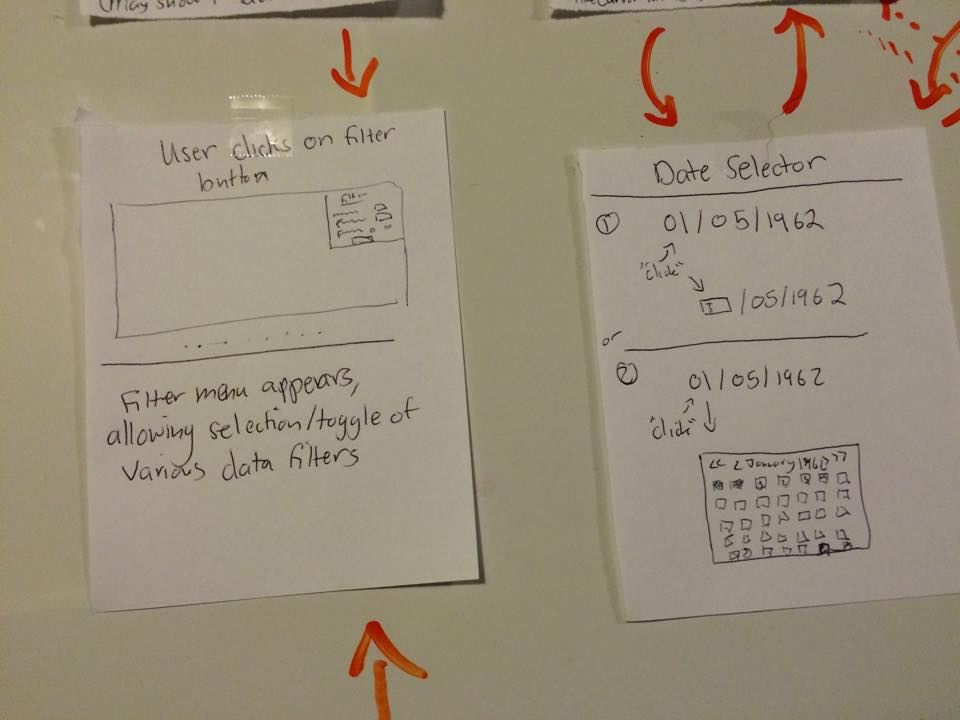 (May show
User clicks on filter
button
Filter
Filter menu appears,
allowing selection/toggle of
various data filters
Date Selector
① 01/05/1962
"click"
I /05/1962
or
② 01/05/1962
"click"
January 1962